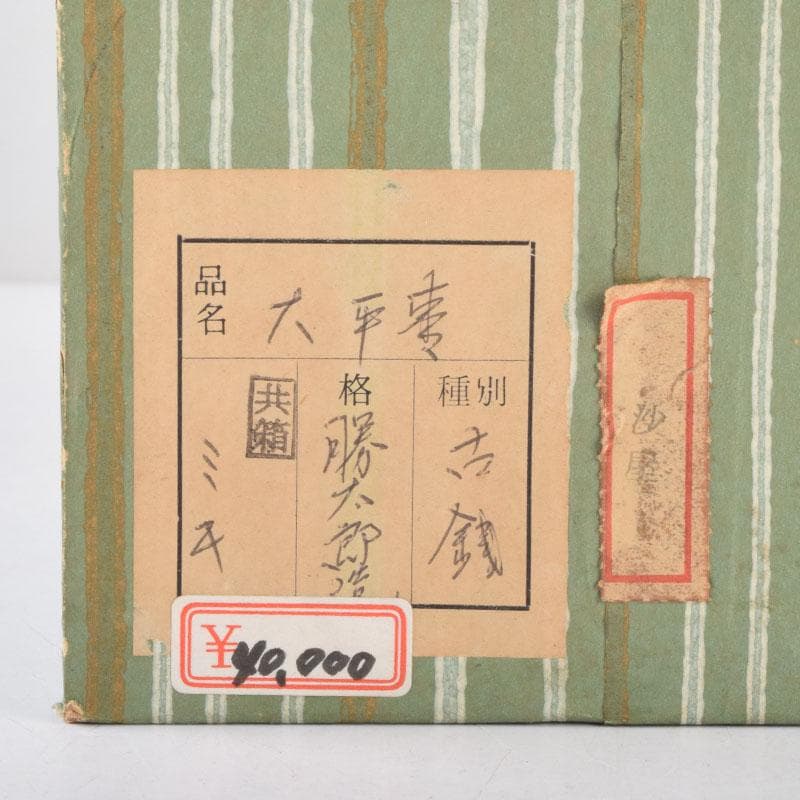 品名
大平棗
種別
古銭
格
勝太郎造
共箱
ミキ
¥40,000